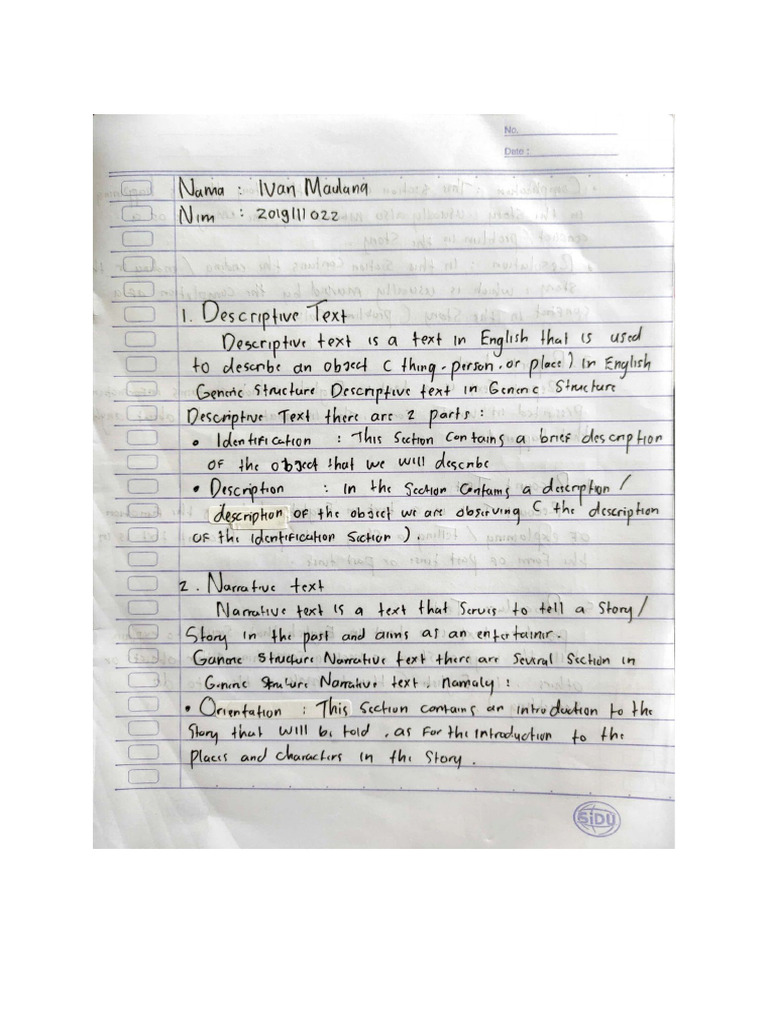 No.
Date :
Nama : Ivan Maulana
Nim : 201911022
1. Descriptive Text
Descriptive text is a text in English that is used
to describe an object ( thing, person, or place ) in English
Generic Structure Descriptive text in Generic Structure
Descriptive Text there are 2 parts :
• Identification : This section contains a brief description
of the object that we will describe
• Description : in the section contains a description /
description of the object we are observing ( the description
of the identification section ).
2. Narrative text
Narrative text is a text that servis to tell a story /
story in the past and aims as an entertainir.
Ganeric Structure Narrative text there are several section in
Generic Struture Narrative text, namaly :
• Orientation : This section contains an introduction to the
story that will be told, as for the introduction to the
places and characters in the story.
SiDU